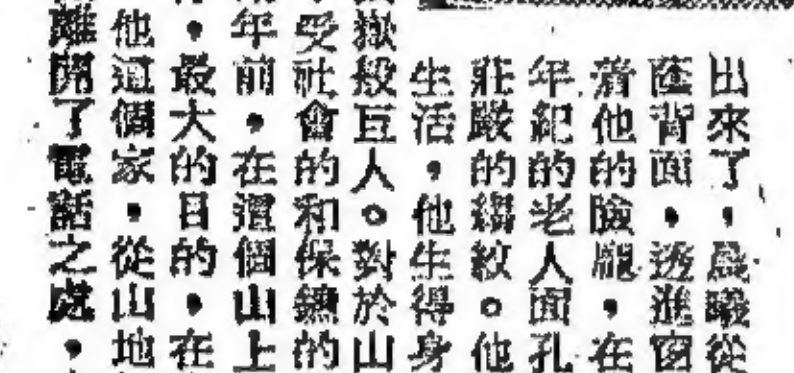 出來了，晨曦從
陸背面，透進窗
着他的臉龐，在
年紀的老人面孔
莊嚴的縐紋。他
生活，他生得身
嶽般巨人。對於山
受社會的和保鑣的
年前，在這個山上
，最大的目的，在
他這個家，從山地
離開了電話之處，